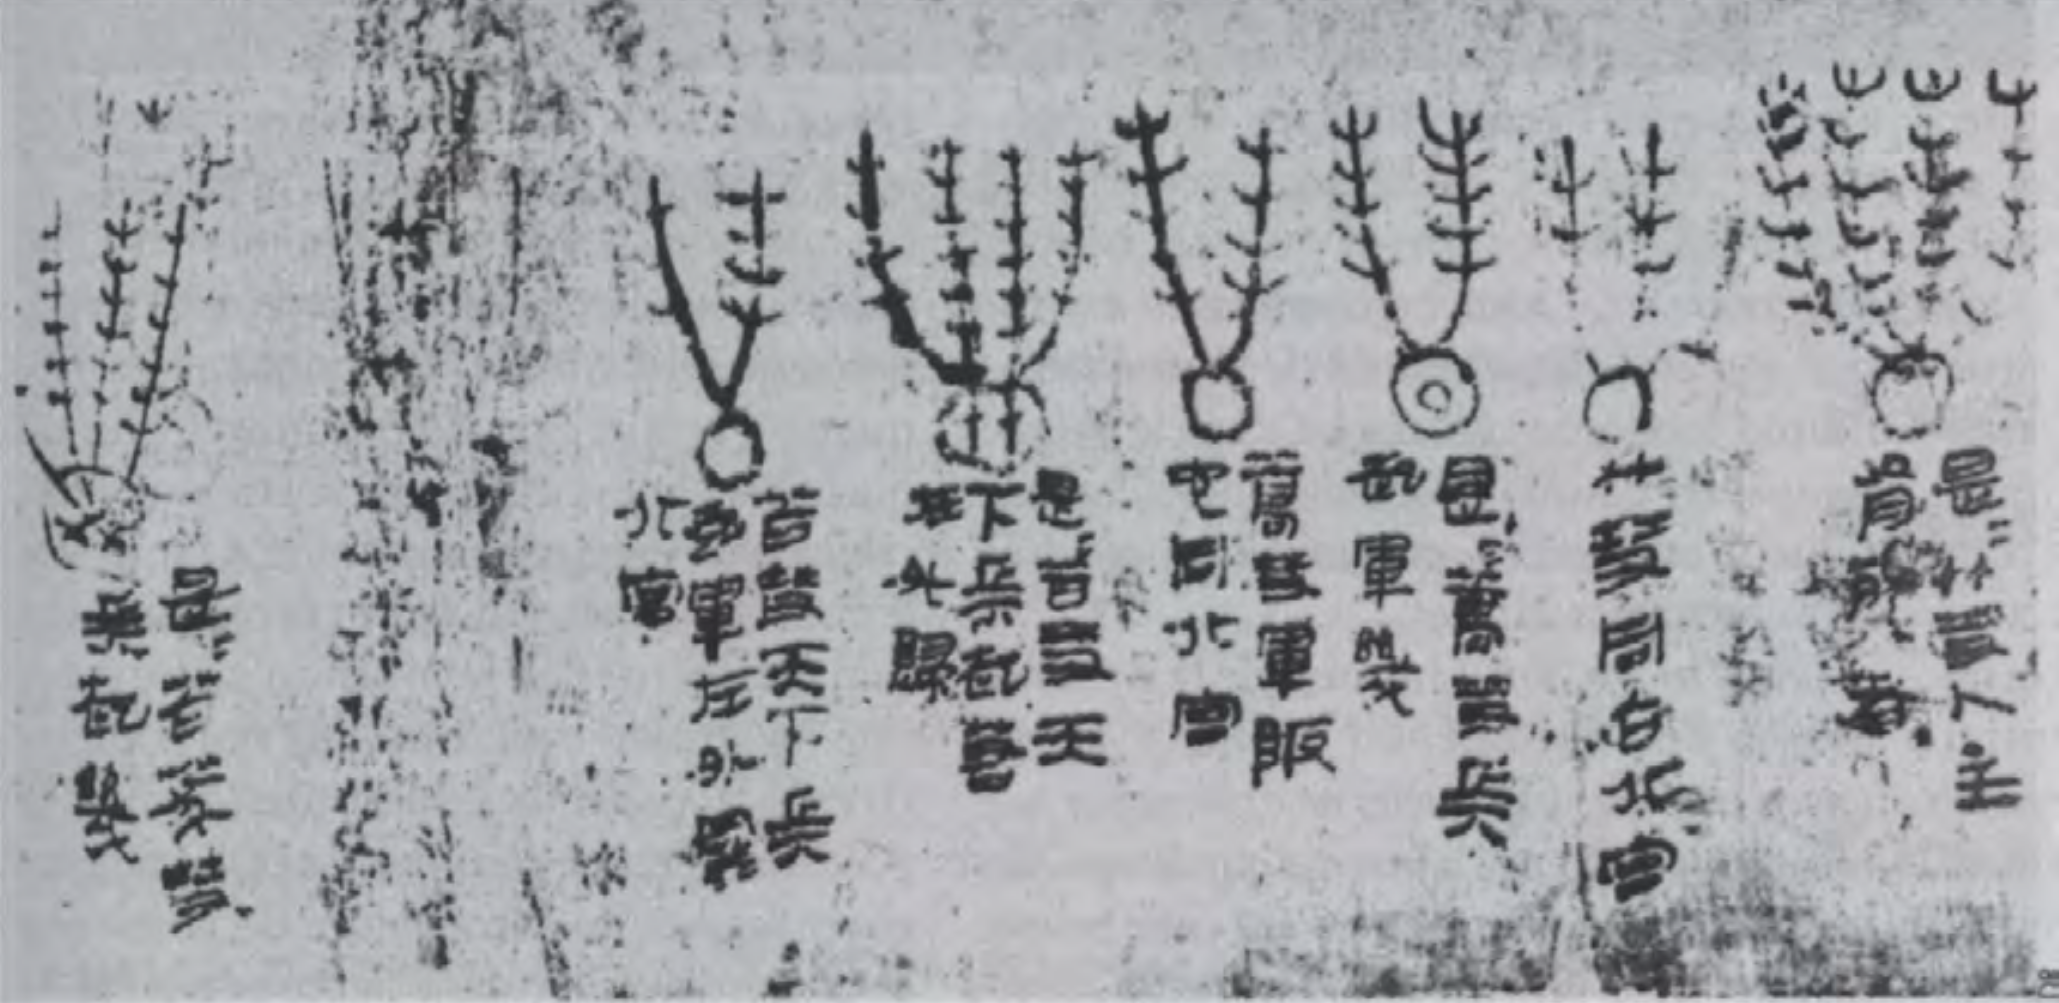 是=竹彗人主
有死者
竹彗同占北宮
是=蒿彗兵
起軍幾
蒿彗軍阪
它同北宮
是=苫彗天
下兵起若
在外歸
苫彗天下兵
起軍在外罷
北宮
是=苫彗
兵起幾